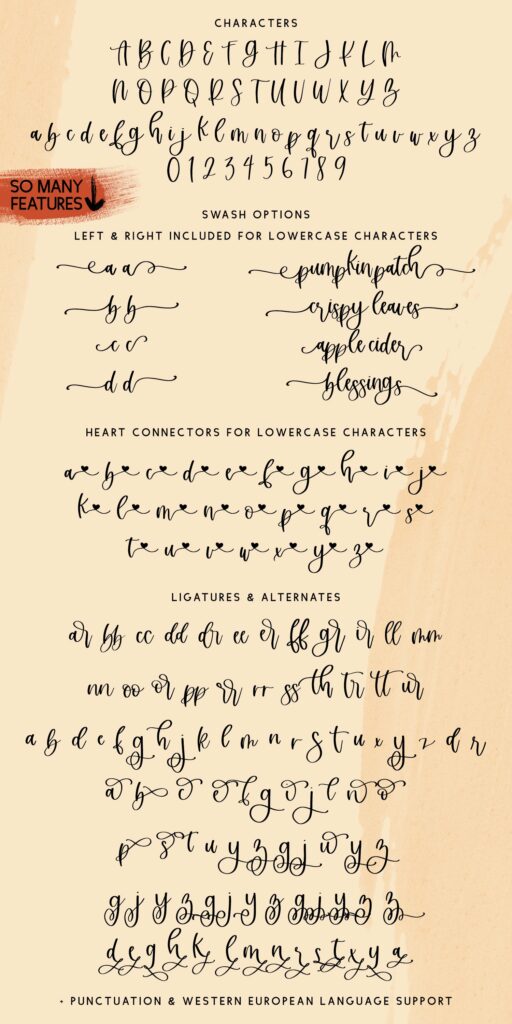 CHARACTERS
A B C D E F G H I J K L M
N O P Q R S T U V W X Y Z
a b c d e f g h i j k l m n o p q r s t u v w x y z
0 1 2 3 4 5 6 7 8 9
SO MANY
FEATURES
SWASH OPTIONS
LEFT & RIGHT INCLUDED FOR LOWERCASE CHARACTERS
a a
pumpkin patch
b b
crispy leaves
c c
apple cider
d d
blessings
HEART CONNECTORS FOR LOWERCASE CHARACTERS
a b c d e f g h i j
k l m n o p q r s
t u v w x y z
LIGATURES & ALTERNATES
ar bb cc dd dr ee er ff gr ir ll mm
nn oo or pp rr rr ss th tr tt ur
a b d e f g h j k l m n r s t u x y z d r
p s t u y z g j w y z
g j y z g j y z g j y z z
d e g h k l m n r s t x y a
+ PUNCTUATION & WESTERN EUROPEAN LANGUAGE SUPPORT